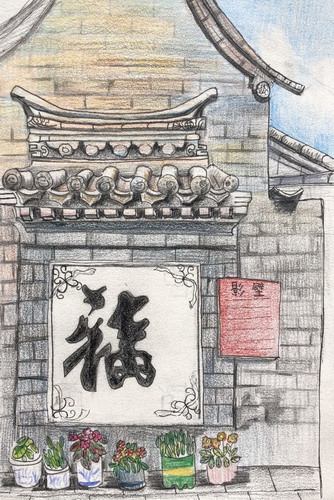 福
影壁